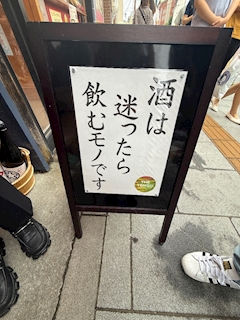 酒は
迷ったら
飲むモノです